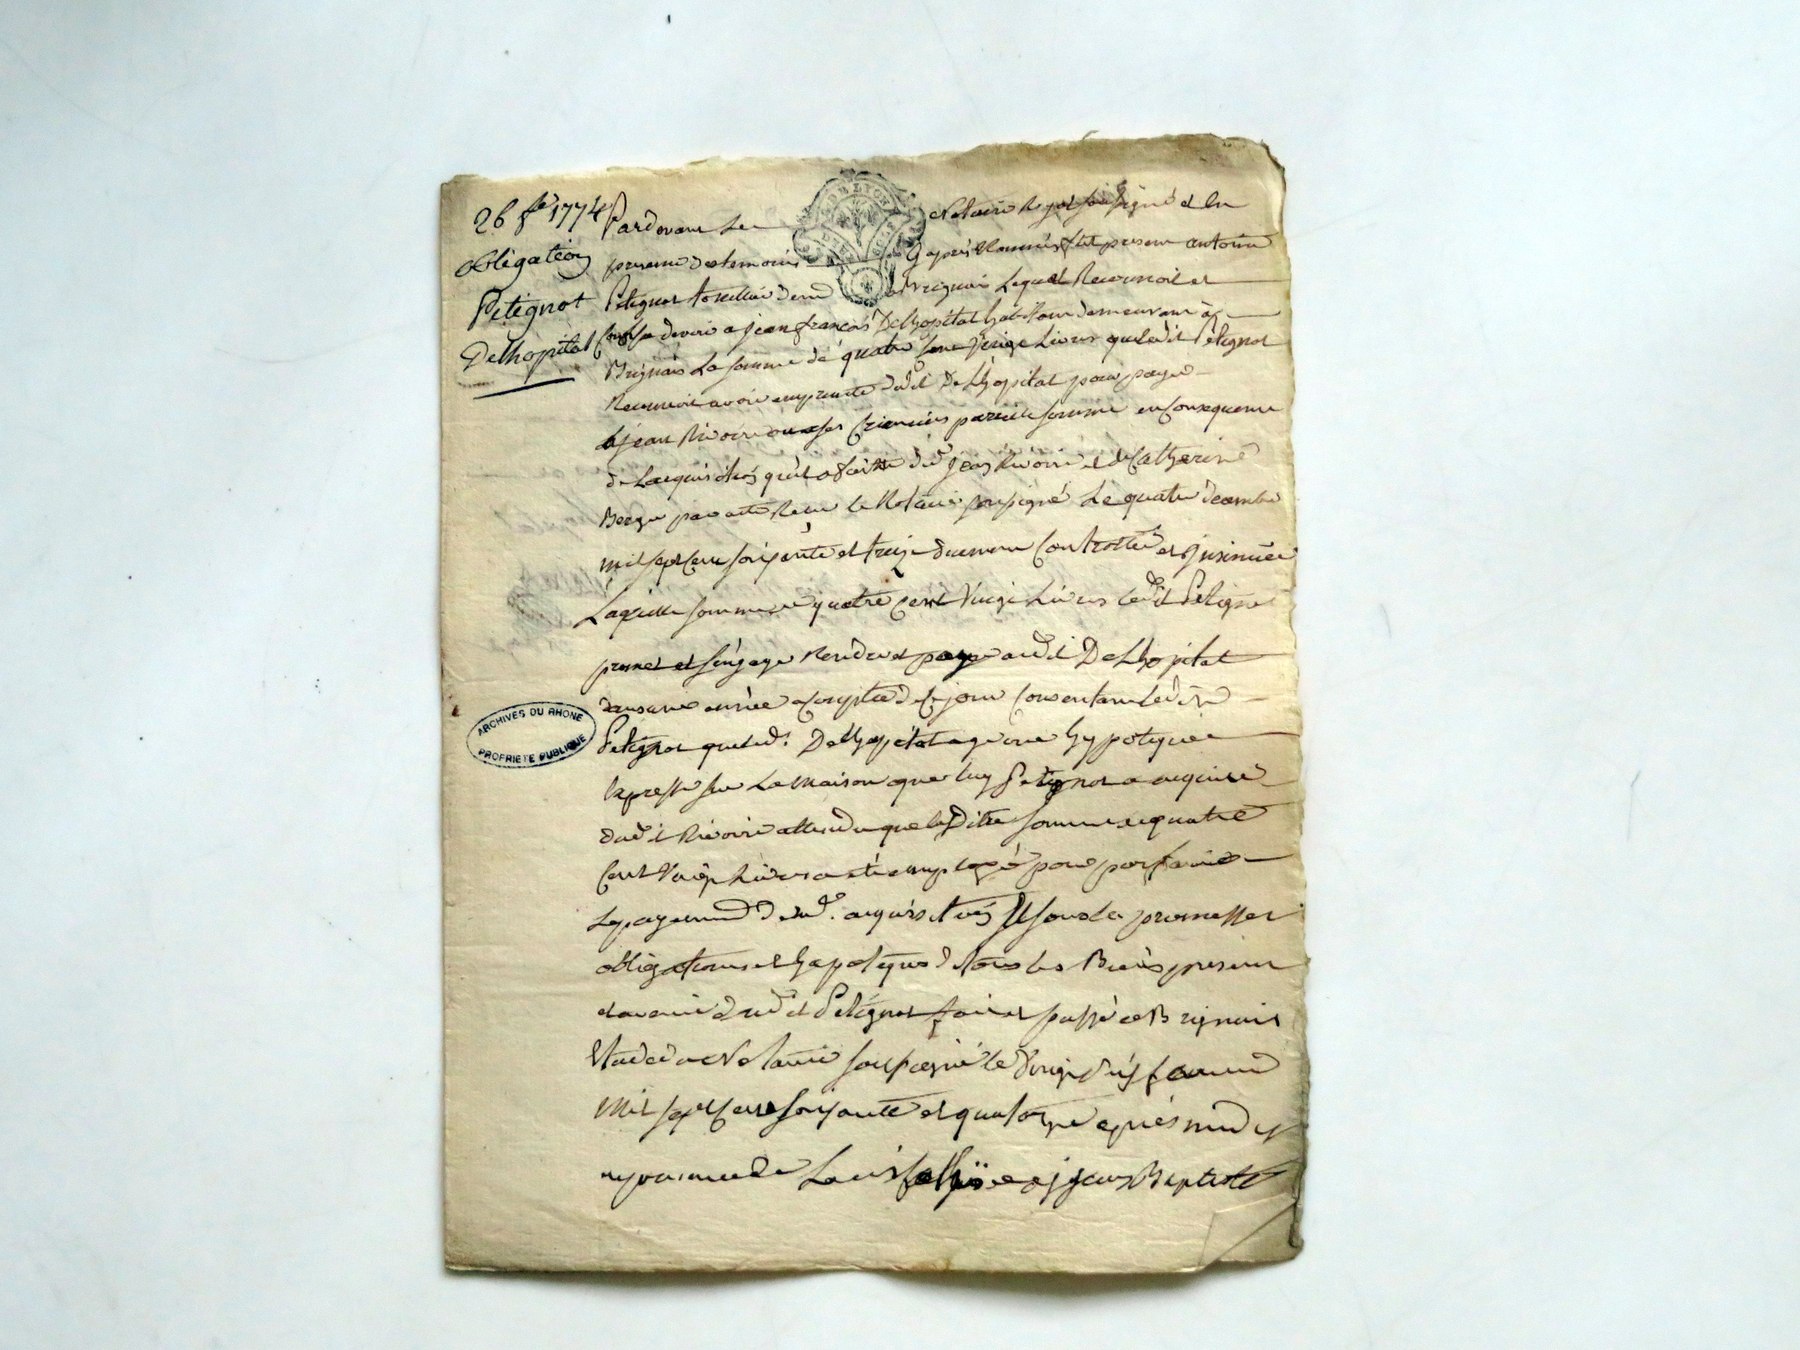 26 fer 1774
obligation
Petignot
Delhopital
Pardevant Le Notaire Royal soussigné et En
presence des temoins cy après Nommés fut present antoine
Petignot tonellier demt a Brignais Lequel Reconnoit et
Confesse devoir a jean françois Delhopital habitant demeurant à
Brignais La somme de quatre Cent vingt Livres que ledit Petignot
Reconnoit avoir emprunté dudit Delhopital pour payer
à jean Rivoire ou a ses Creanciers pareille somme en Consequence
de Lacquisition qu'il a faitte dud jean Rivoire et de Catherine
Berger par acte Recu le Notaire soussigné Le quatre decembre
mil sept Cent soixante et treize duement Controllé et insinuée
Laquelle somme de quatre Cent Vingt Livres ledit Petignot
promet et s'engage Rendre et payer audit Delhopital
dans une année a Compter de Ce jour Consentant ledit
Petignot que led. Delhopital aye une hypoteque
Expresse sur La Maison que luy Petignot a acquise
dudit Rivoire attendu que laditte somme de quatre
Cent Vingt Livres a été employé pour parfaire
Le payement de lad. acquisition Et sous les promesses
obligations et hypoteques de tous les Biens presents
et avenir dudit Petignot fait et passé a Brignais
Etude du Notaire soussigné le Vingt six fevrier
Mil sept Cent soixante et quatorze après midy
en presence de jean Baptiste
DE LYON
ARCHIVES DU RHONE
PROPRIETE PUBLIQUE